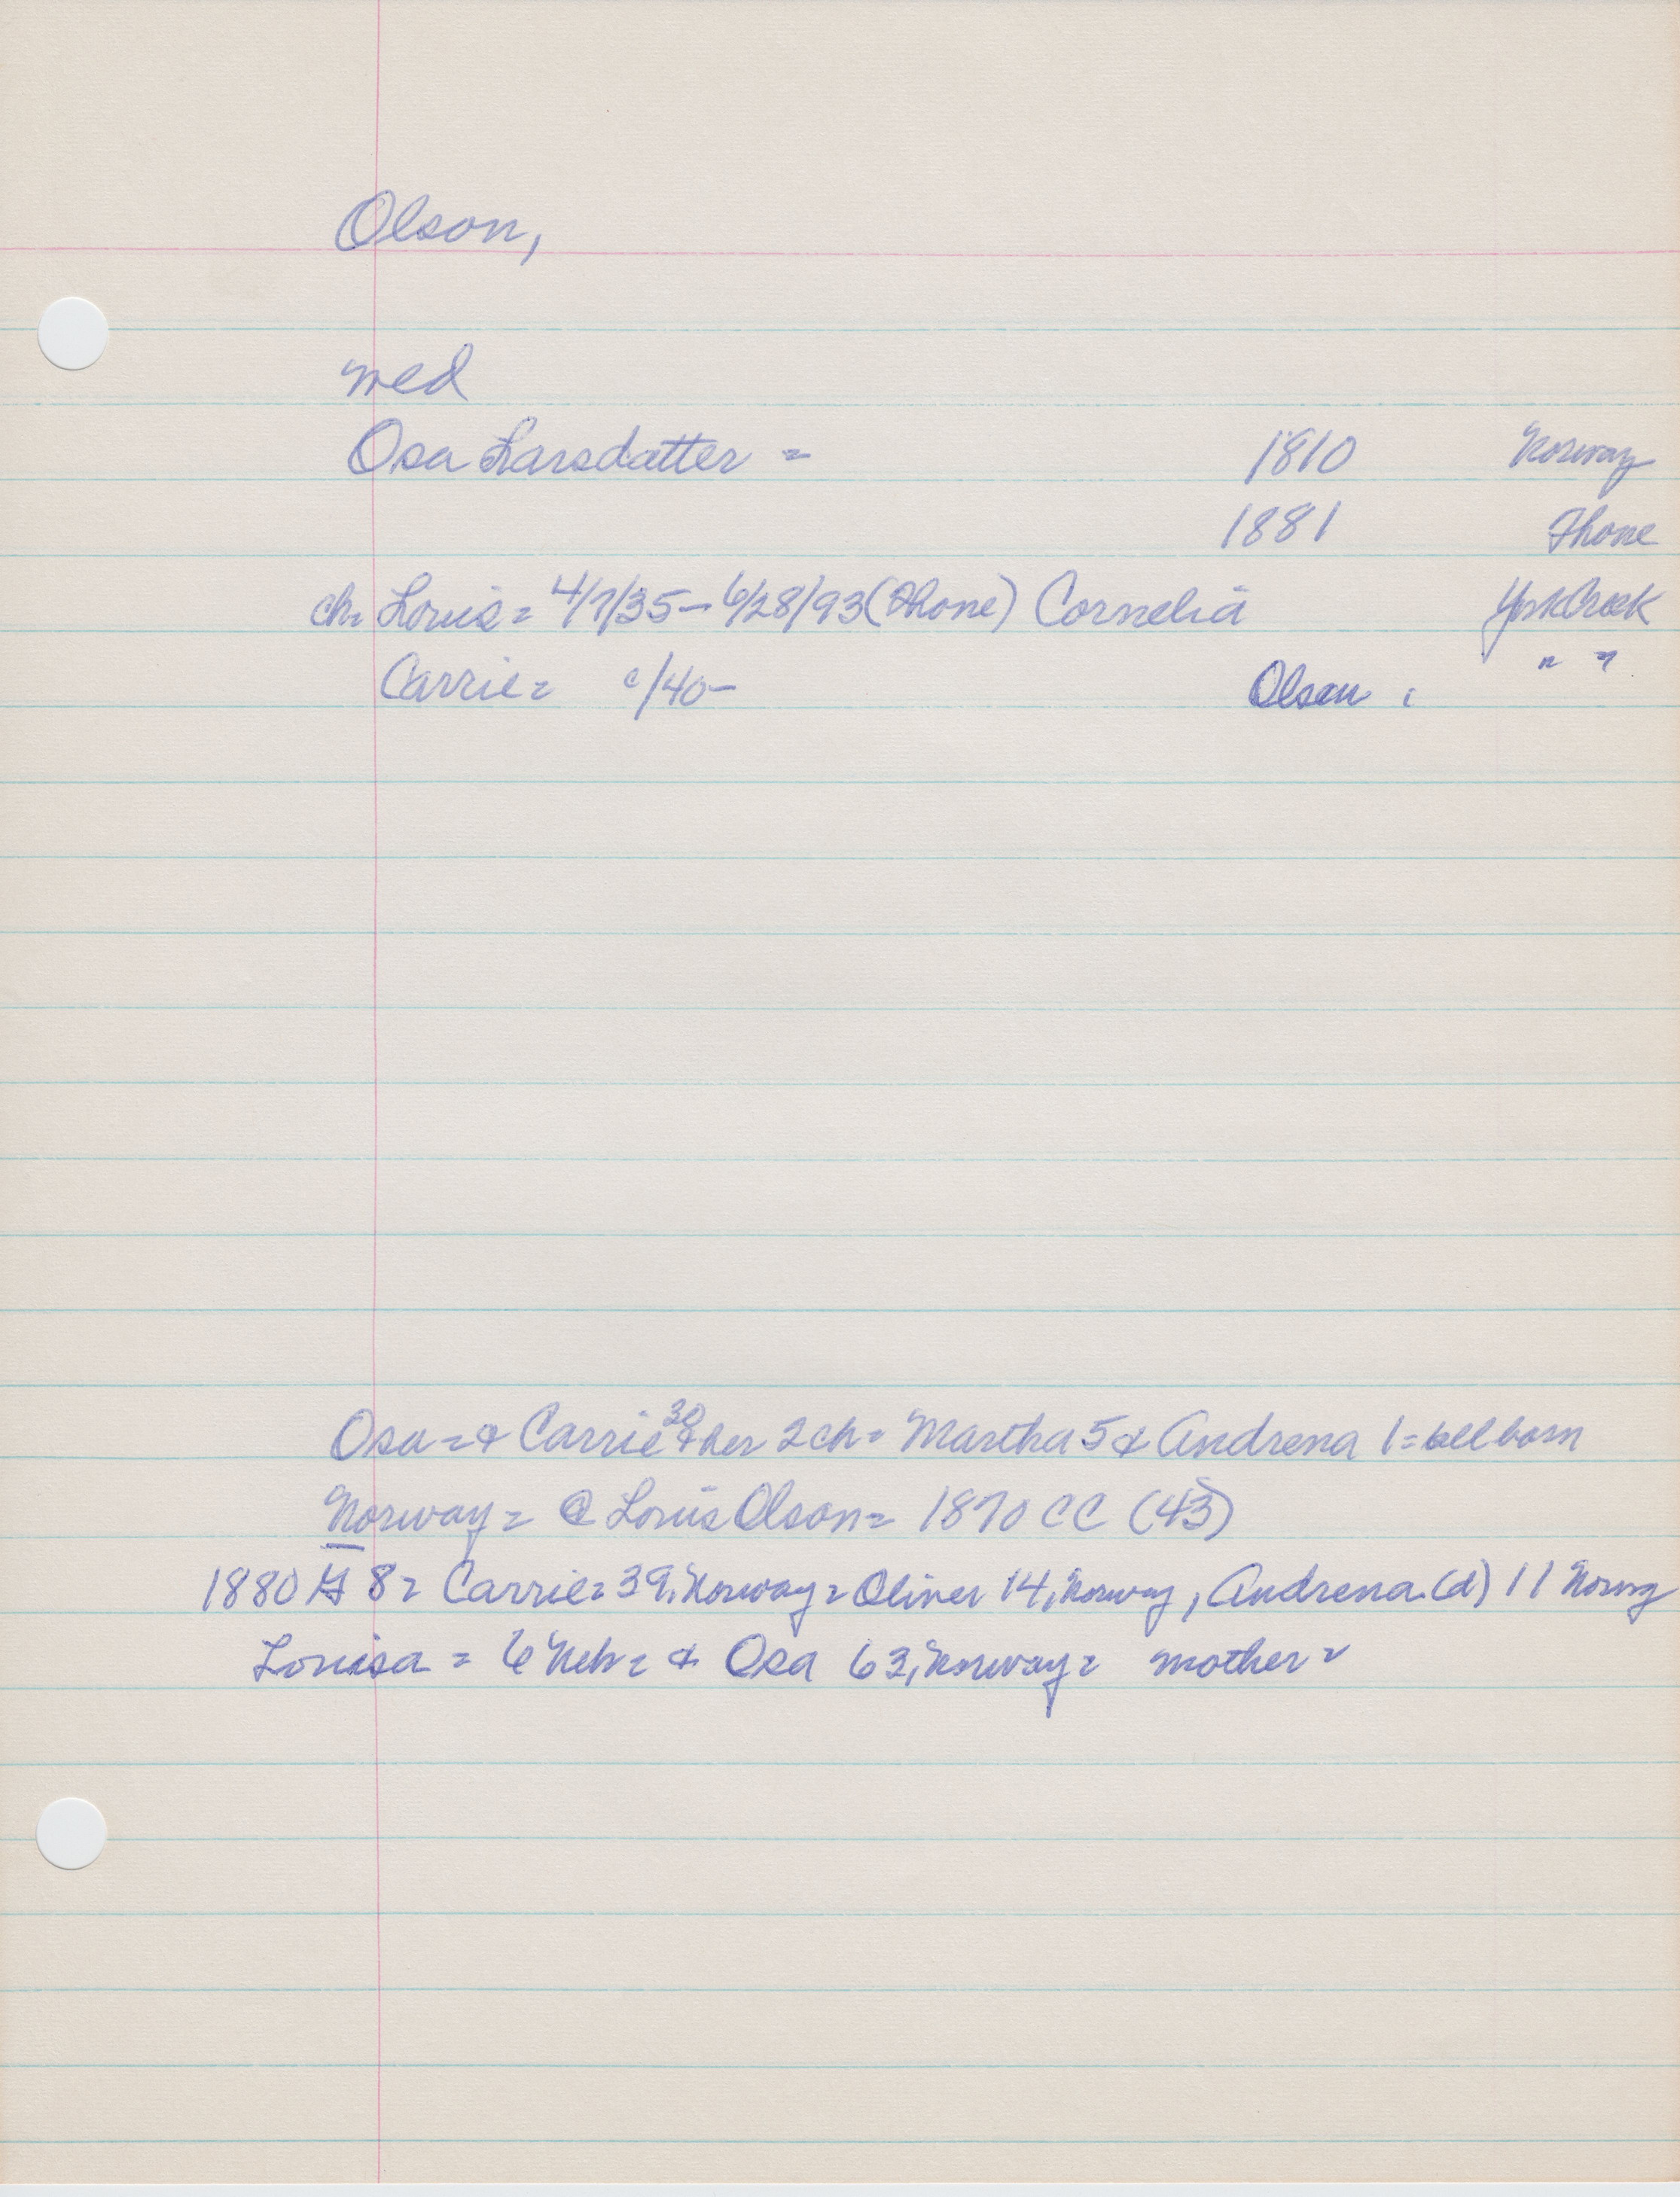 Olson,
med
Osa Larsdatter = 1810 Norway
1881 Thone
ch= Louis = 4/7/35 - 6/28/93 (Thone) Cornelia York Creek
Carrie = c/40 - Olson " "
Osa = & Carrie 30 & her 2 ch = Martha 5 & Andrena 1 = all born
Norway = @ Louis Olson = 1870 CC (43)
1880 8 = Carrie = 39, Norway = Oliver 14, Norway, Andrena (d) 11 Norwy
Louisa = 6 Neb = & Osa 63, Norway = mother =